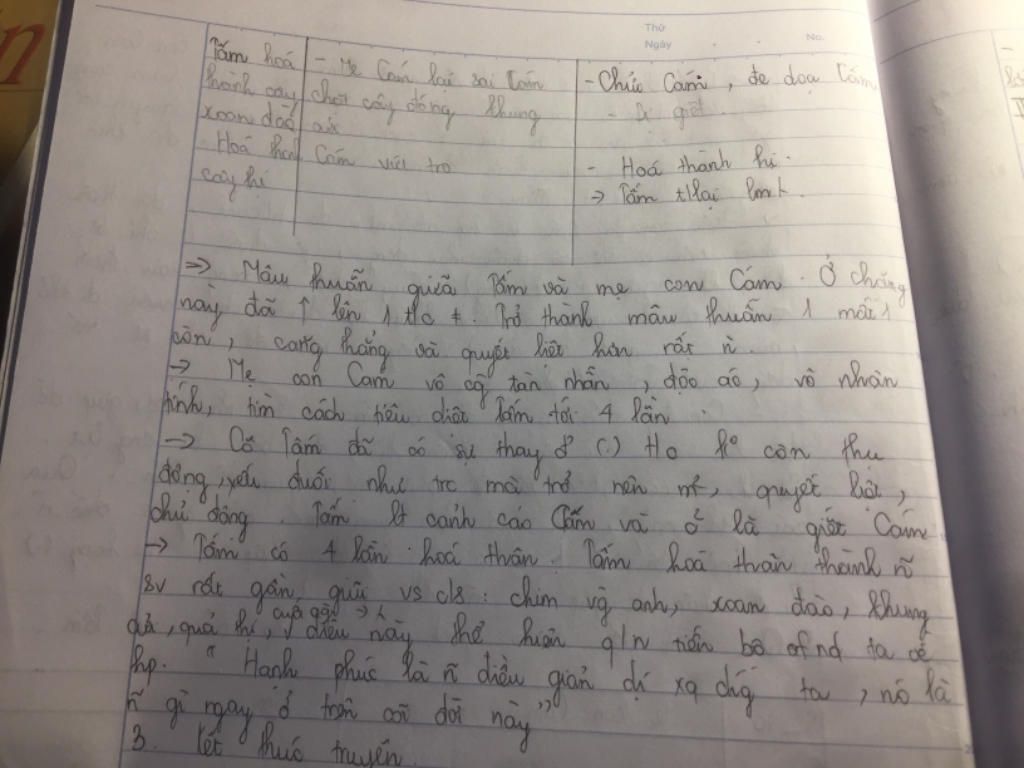 Thứ
Ngày
No.
Tấm hoá - Mẹ Cám lại sai Cám - Chửi Cám, đe doạ Cám
thành cây chặt cây đóng khung - Bị giết
xoan đào cửi
Hoá thành Cám vứt tro - Hoá thành thị.
cây thị → Tấm trở lại
⇒ Mâu thuẫn giữa Tấm và mẹ con Cám. Ở chặng
này đã ↑ lên 1 t/c ≠. Trở thành mâu thuẫn 1 mất 1
còn, căng thẳng và quyết liệt hơn rất ñ.
→ Mẹ con Cam vô cg tàn nhẫn, độc ác, vô nhân
tính, tìm cách tiêu diệt Tấm tới 4 lần.
→ Cô Tấm đã có sự thay (.) Ho ko còn thu
động, yếu đuối như trc mà trở nên quyết liệt,
chủ động. Tấm cảnh cáo Cám và là giết Cám
→ Tấm có 4 lần hoá thân. Tấm hoá thân thành ñ
sv rất gần gũi vs c/s: chim vg anh, xoan đào, khung
cửi, quả thị, điều này thể hiện q/n tiến bộ of nd ta về
hp. "Hạnh phúc là ñ điều giản dị xq chg ta, nó là
ñ gì ngay ở trên cõi đời này"
3. Kết thúc truyện